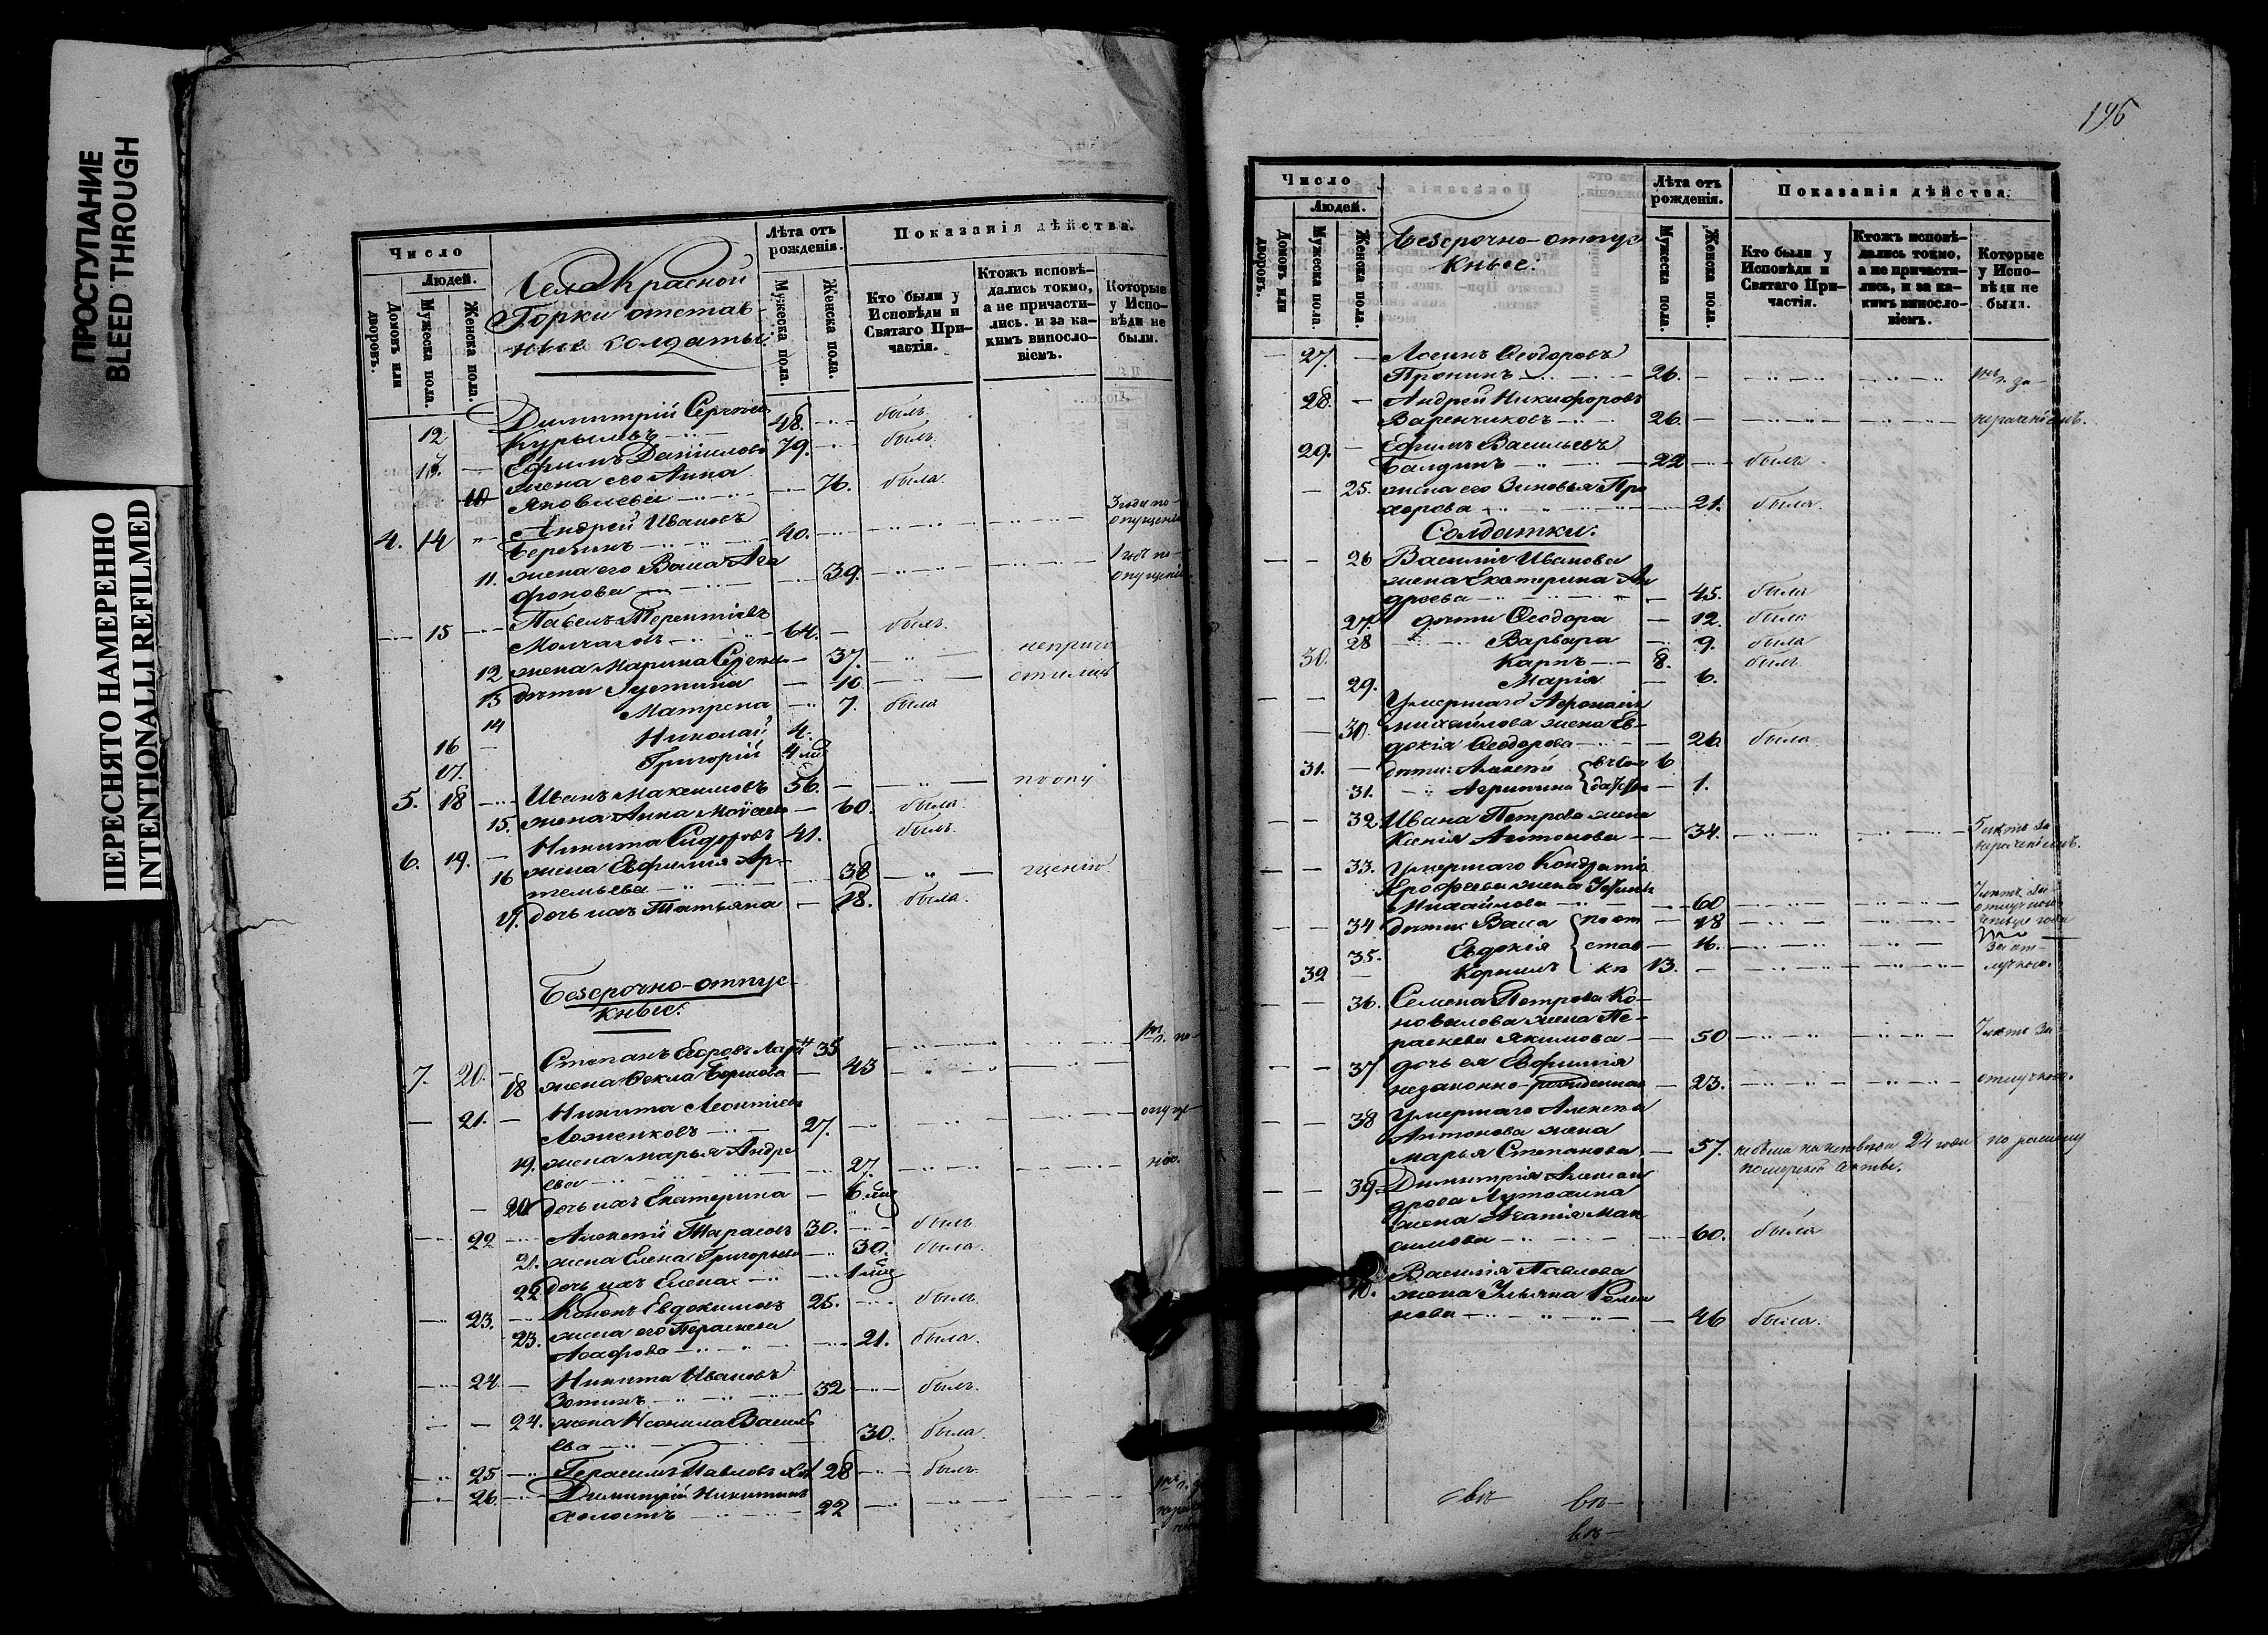 ПРОСТУПАНИЕ
BLEED THROUGH
ПЕРЕСНЯТО НАМЕРЕННО
INTENTIONALLI REFILMED
Число
Людей.
Домовъ или дворовъ.
Мужеска пола.
Женска пола.
Села Красной
Горки отстав-
ные солдаты
Лѣта отъ рожденія.
Мужеска пола.
Женска пола.
Показанія дѣйства.
Кто были у Исповѣди и Святаго При-частія.
Ктожъ исповѣ-дались токмо, а не причасти-лись. и за ка-кимъ винosло-віемъ.
Которые у Испо-вѣди не были.
12 Димитрій Сергѣевъ
Курышевъ 48. былъ.
13. Ефимъ Даниловъ 79. былъ.
10 жена его Анна
Яковлева 76. была.
4. 14 Андрей Ивановъ 3 года по
40. опущенію
11. жена его Васса Ага 1 годъ по
фонова 39. опущенію.
15 Павелъ Терентіевъ
64. былъ.
12 жена Марина Сергѣева 37. неприча
13 дѣти Густина 10. стилась
14 Матрена 7. была
16 Николай 4.
17. Григорій 4 мѣс
5. 18 Иванъ Максимовъ 56. по опу
15. жена Анна Моѵсеева 60. была.
6. 19. Никита Сидоровъ 41. былъ.
16 жена Евфимія Ар-
темьева 38 щенію.
17. дочь ихъ Татьяна 18. была.
Безсрочно-отпус-
кные.
7. 20. Степанъ Егоровъ 35
18 жена Ѳекла 43
21. Никита Леонтіевъ
Ложенковъ 27. опуще
19. жена Марья Андре
ева 27. нію.
20 дочь ихъ Екатерина 6 мѣс
22 Алексѣй Тарасовъ 30. былъ
21. жена Елена Григорьева 30. была.
22 дочь ихъ Елена 1 мѣс
23. Кононъ Евдокимовъ 25. былъ.
23. жена его Параскева
Агафова 21. была.
24 Никита Ивановъ
Зотинъ 32 былъ.
24. жена Неонила Василь
ева 30. была.
25 Герасимъ Павловъ 28 былъ.
26. Димитрій Никитинъ
холостъ 22
196
Число
Людей.
Домовъ или дворовъ.
Мужеска пола.
Женска пола.
Безсрочно-отпус
кные.
Лѣта отъ рожденія.
Мужеска пола.
Женска пола.
Показанія дѣйства.
Кто были у Исповѣди и Святаго При-частія.
Ктожъ исповѣ-дались токмо, а не причасти-лись, и за ка-кимъ винosло-віемъ.
Которые у Испо-вѣди не были.
27. Логинъ Ѳеодоровъ
Пронинъ 26. за
28. Андрей Никифоровъ
Варенчиковъ 26. нерачніемъ.
29. Ефимъ Васильевъ
Балдинъ 22 былъ
25. жена его Зиновья Про
хорова 21. была.
Солдатки.
26 Василія Иванова
жена Екатерина Ан
дреева 45. была
27. дѣти Ѳеодора 12. была
28 Варвара 9. была
30. Карпъ 8. былъ
29. Марія 6.
Умершаго Аѳонасія
30. Михайлова жена Ев-
докія Ѳеодорова 26. была
31. дѣти: Алексѣй 6
31. Агрипина 1.
32 Ивана Петрова жена 5 лѣтъ за
Ксенія Антонова 34. нераченіемъ.
33. Умершаго Кондратія
Ерофеева жена
Михайлова 60 7 лѣтъ за отлучкою
34 дѣти: Васса по от 18 четыре года
35. Евдокія став 16. за от-
32 Корнилъ кѣ 13. лучкою.
36. Семена Петрова Ко-
новалова жена Па-
раскева Якимова 50 7 лѣтъ за
37 дочь ея Евфимія
незаконно-рожденная 23. отлучкою.
38 Умершаго Алексѣя
Антонова жена
Марья Степанова 57. небыла на исповѣди 24 года по расколу
39. Димитрія Алексан
дрова Лутохина
жена Агапія Мак
симова 60. была
40. Василія Павлова
жена Ульяна Роман
нова 46 была.